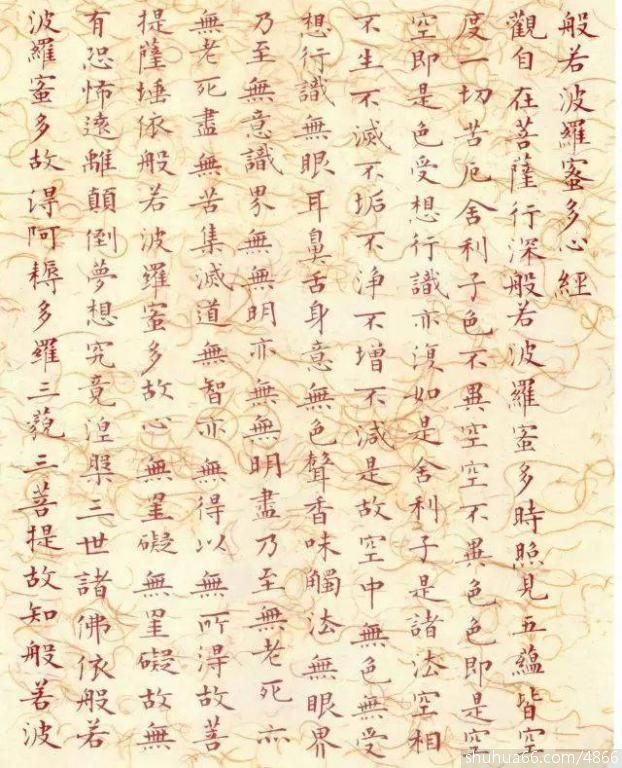 般若波羅蜜多心經
觀自在菩薩行深般若波羅蜜多時照見五蘊皆空
度一切苦厄舍利子色不異空空不異色色即是空
空即是色受想行識亦復如是舍利子是諸法空相
不生不滅不垢不淨不增不減是故空中無色無受
想行識無眼耳鼻舌身意無色聲香味觸法無眼界
乃至無意識界無無明亦無無明盡乃至無老死亦
無老死盡無苦集滅道無智亦無得以無所得故菩
提薩埵依般若波羅蜜多故心無罣礙無罣礙故無
有恐怖遠離顛倒夢想究竟涅槃三世諸佛依般若
波羅蜜多故得阿耨多羅三藐三菩提故知般若波
shuhua66.com/4866